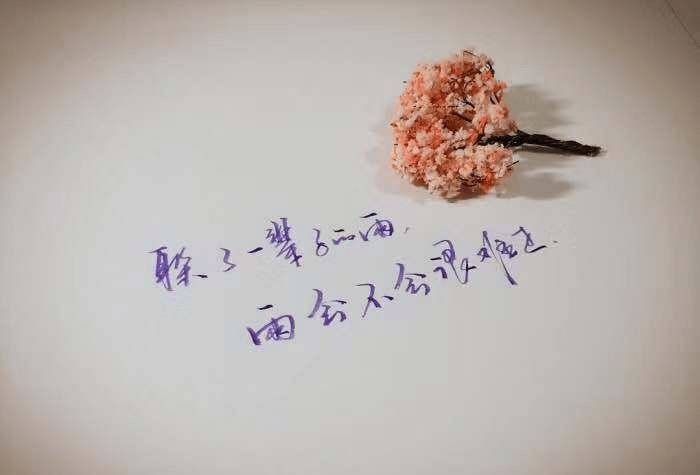 躲了一辈子的雨,
雨会不会很难过.